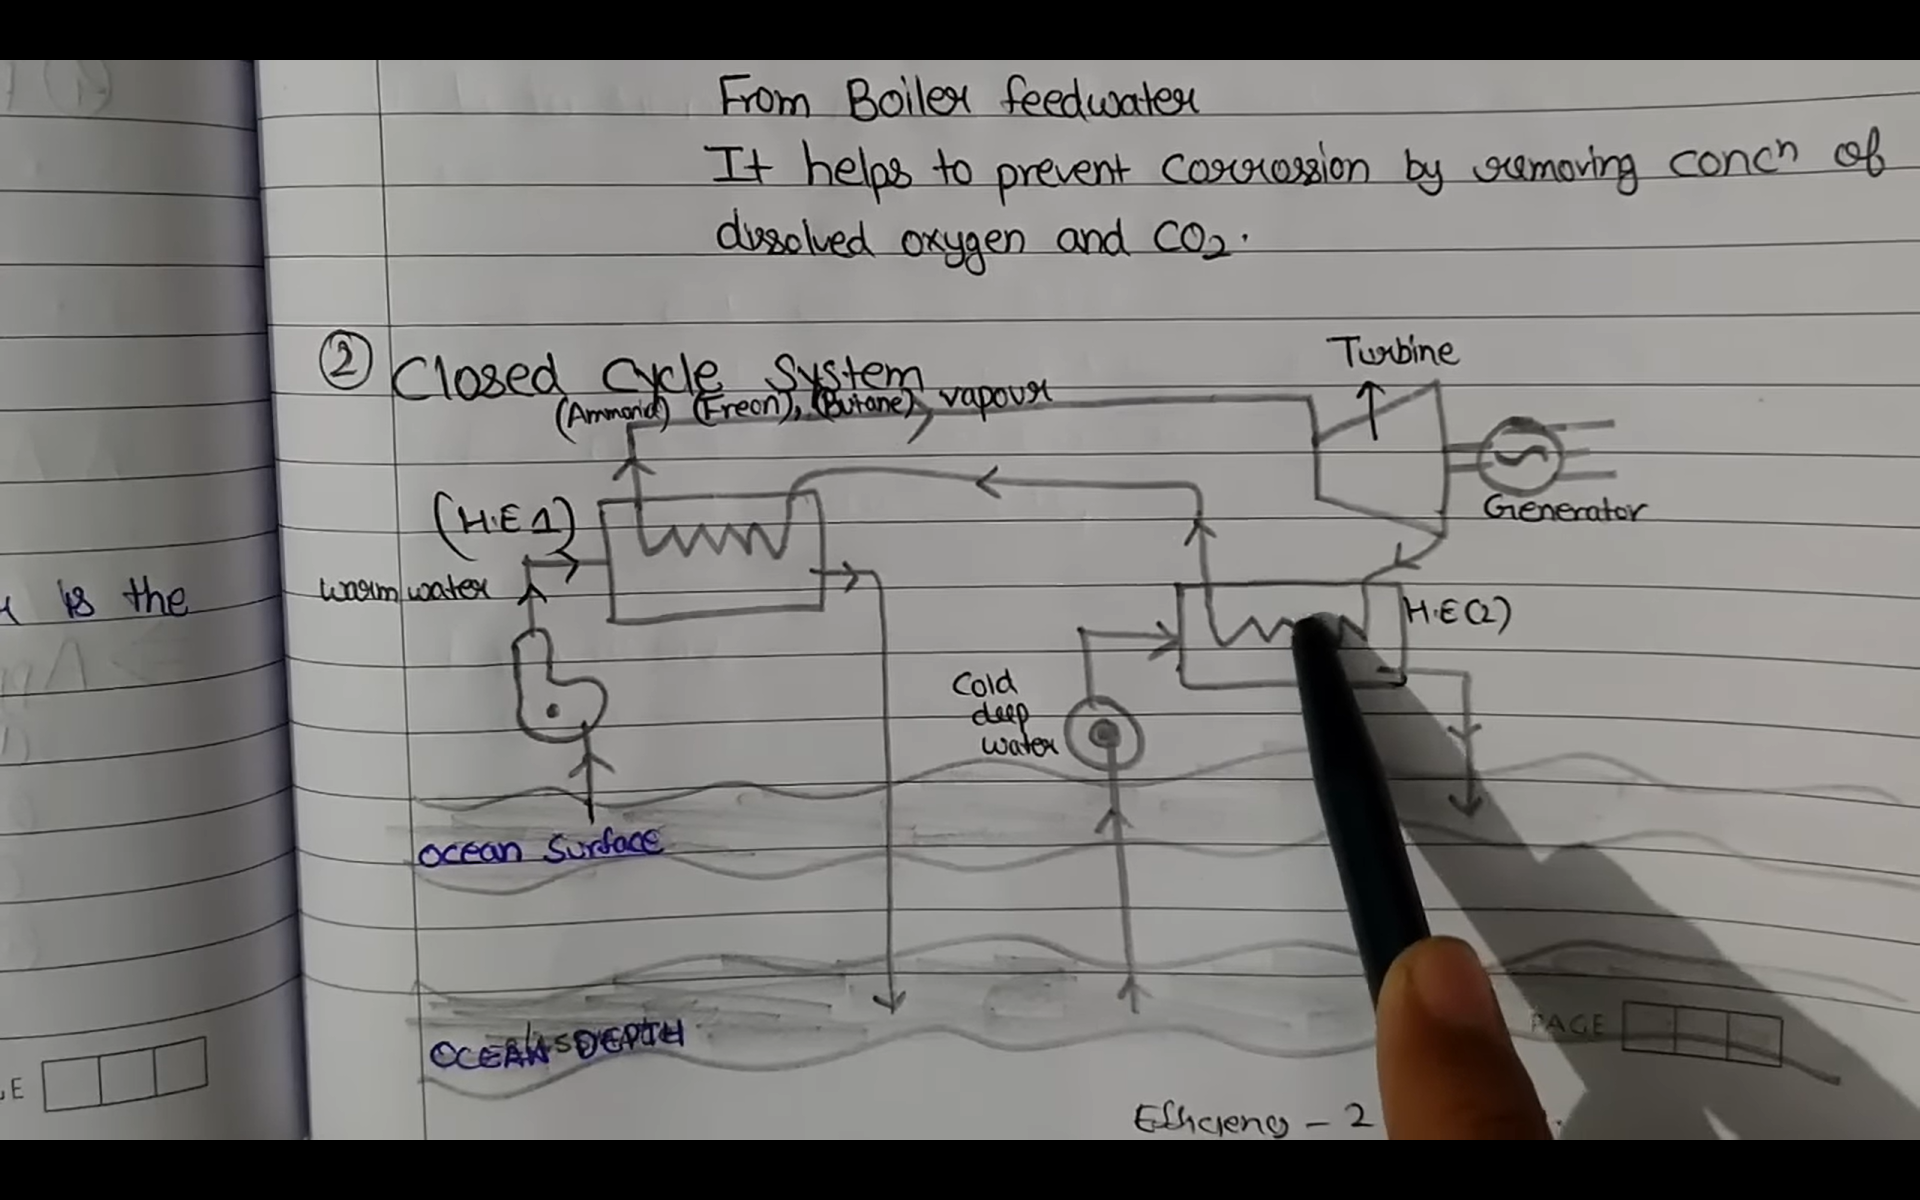 From Boiler feedwater
It helps to prevent corrossion by removing concn of
dissolved oxygen and CO2.
is the
② Closed Cycle System
(Ammonia) (Freon), (Butane) vapour
Turbine
Generator
(H.E 1)
warm water
H.E(2)
Cold
deep
water
Ocean Surface
OCEAN DEPTH
PAGE
E
Efficiency - 2